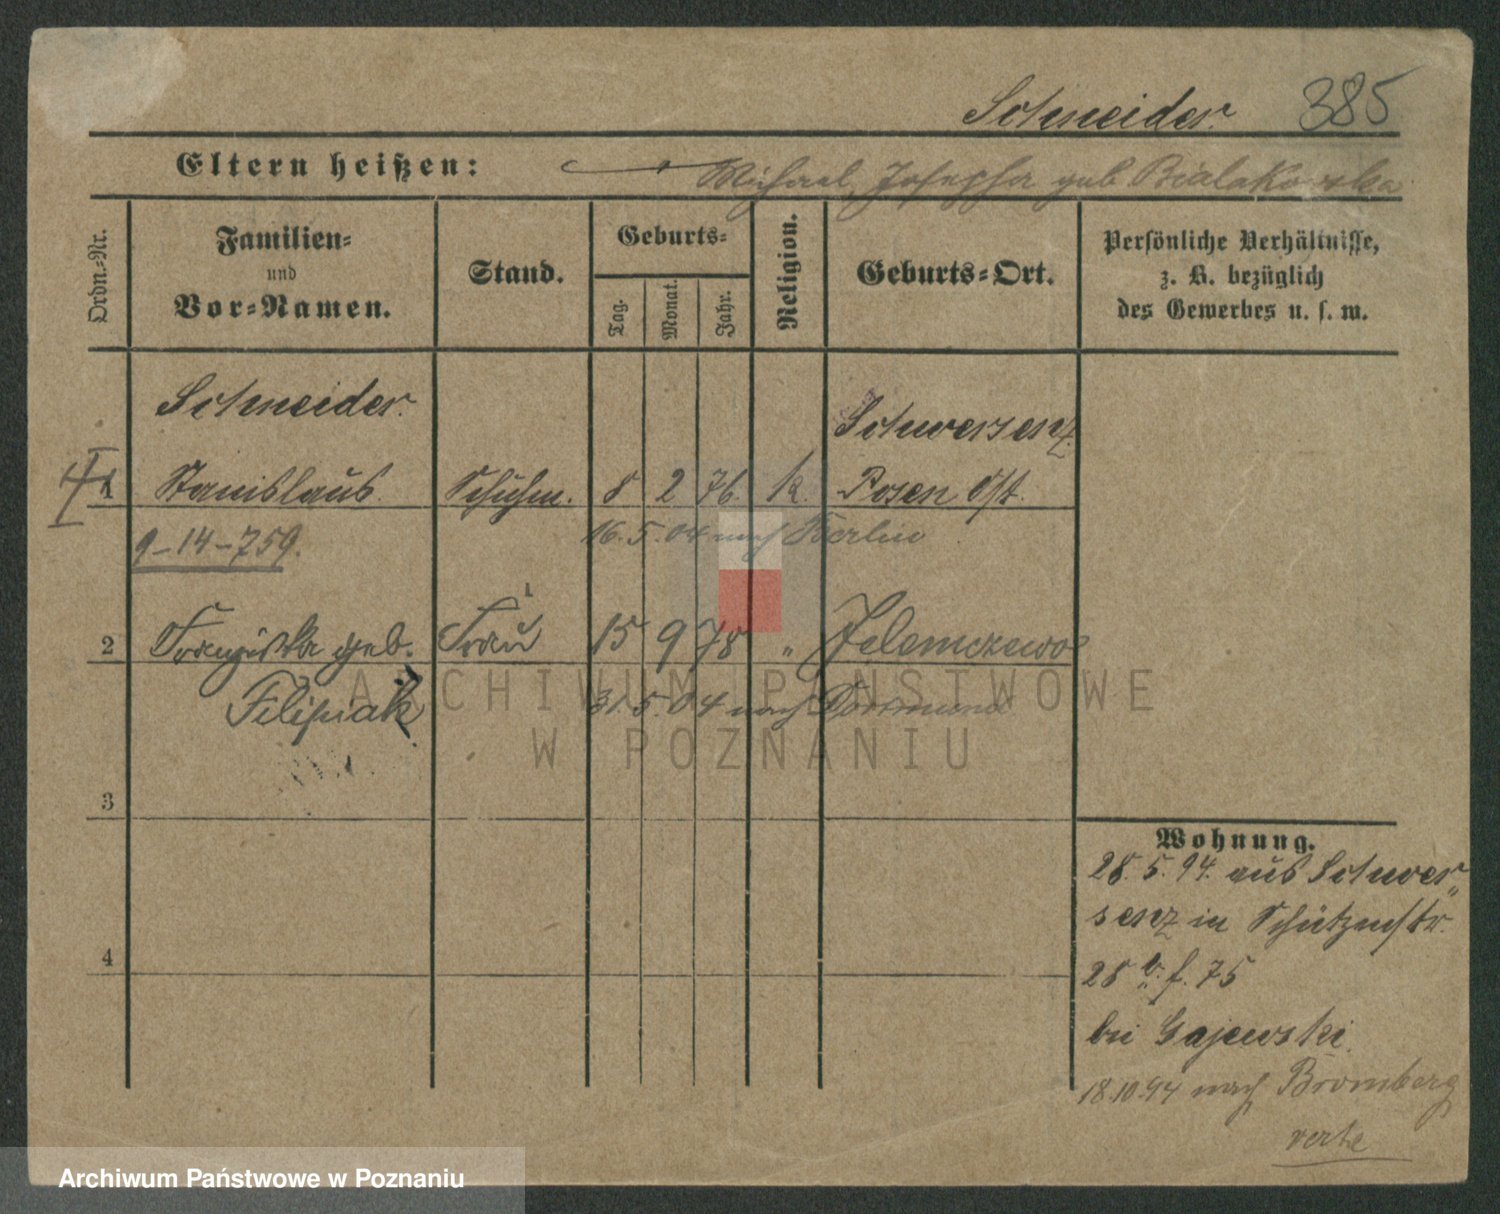 Schneider. 385
Eltern heißen: Michael, Josepha geb Bialakowska
Ordn.-Nr.
Familien-
und
Vor-Namen.
Stand.
Geburts-
Tag.
Monat.
Jahr.
Religion.
Geburts-Ort.
Persönliche Verhältnisse,
z. B. bezüglich
des Gewerbes u. s. w.
Schneider.
Schwersenz
1 Stanislaus. Schuhm. 8 2 76. k. Posen Ost.
9-14-759. 16.5.04 nach Berlin
2 Franziska geb. Frau 15 9 78 " 
Filipiak 31.5.04 nach Dortmund
3
4
Wohnung.
28.5.94. aus Schwer
senz in Schützenstr.
28 b. f. 75
bei Gajewski.
18.10.94 nach Bromberg
verte
ARCHIWUM PAŃSTWOWE
W POZNANIU
Archiwum Państwowe w Poznaniu